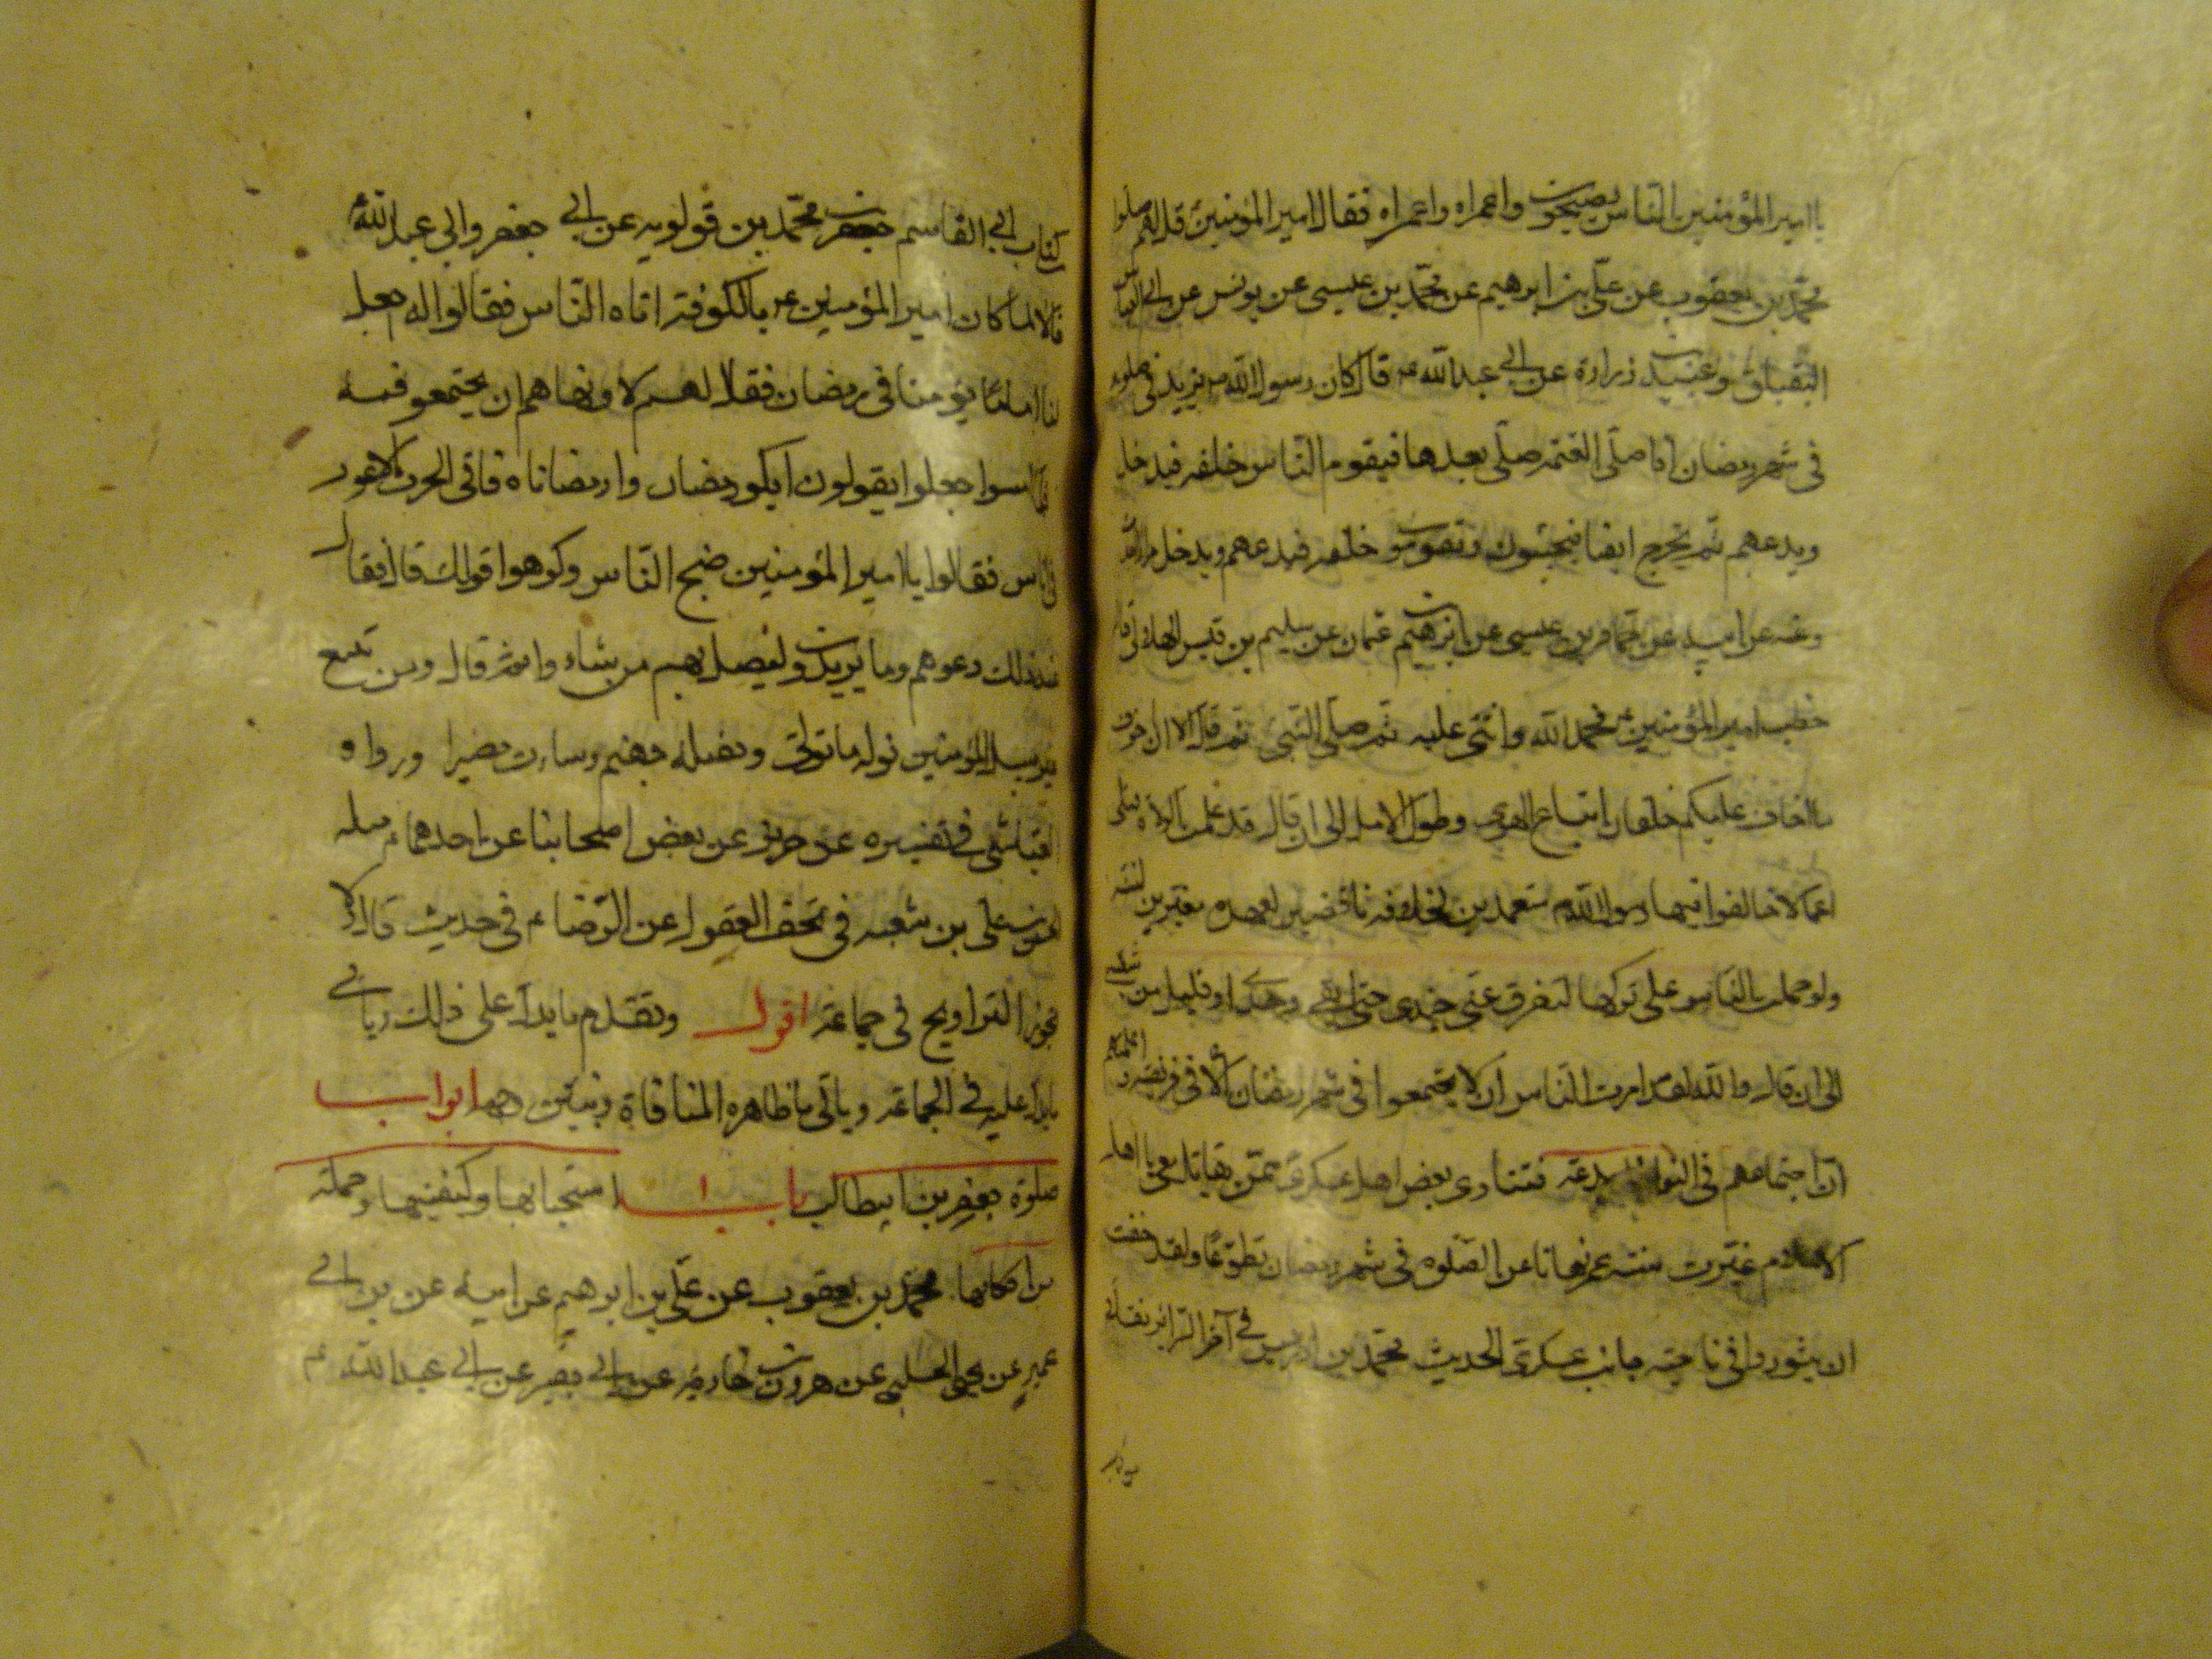 يا امير المؤمنين الناس يصيحون واعمراه واعمراه فقال امير المؤمنين قل لهم صلوا
محمد بن يعقوب عن علي بن ابرهيم عن محمد بن عيسى عن يونس عن ابي العباس
البقباق وعبيد بن زرارة عن ابي عبد الله ع قال كان رسول الله ص يزيد في صلوته
في شهر رمضان اذا صلى العتمة صلى بعدها فيقوم الناس خلفه فيدخل
ويدعهم ثم يخرج ايضا فيجيئون ويقومون خلفه فيدعهم ويدخل مرارا
وعنه عن ابيه عن حماد بن عيسى عن ابرهيم بن عثمان عن سليم بن قيس الهلالي قال
خطب امير المؤمنين ع فحمد الله واثنى عليه ثم صلى النبي ثم قال الا ان اخوف
ما اخاف عليكم خلتان اتباع الهوى وطول الامل الى ان قال قد عملت الولاة قبلي
اعمالا خالفوا فيها رسول الله ص متعمدين لخلافه ناقضين لعهده مغيرين لسنته
ولو حملت الناس على تركها لتفرق عني جندي حتى ابقى وحدي او قليل من شيعتي
الى ان قال والله لقد امرت الناس ان لا يجتمعوا في شهر رمضان الا في فريضة و اعلمتهم
ان اجتماعهم في النوافل بدعة فتنادى بعض اهل عسكري ممن يقاتل معي يا اهل
الاسلام غيرت سنة عمر نهانا عن الصلوة في شهر رمضان تطوعا ولقد خفت
ان يثوروا في ناحية جانب عسكري الحديث محمد بن ادريس في آخر السرائر نقلا
كتاب ابي القاسم جعفر بن محمد بن قولويه عن ابي جعفر وابي عبد الله ع
قالا لما كان امير المؤمنين ع بالكوفة اتاه الناس فقالوا له اجعل
لنا اماما يؤمنا في رمضان فقال لهم لا ونهاهم ان يجتمعوا فيه
فلما امسوا جعلوا يقولون ابكو رمضان وا رمضاناه فاتى الحرث الاعور
في ناس فقالوا يا امير المؤمنين ضج الناس وكرهوا قولك قال فقال
عند ذلك دعوهم وما يريدون ليصل بهم من شاؤا ثم قال ومن يتبع
غير سبيل المؤمنين نوله ما تولى ونصله جهنم وساءت مصيرا ورواه
العياشي في تفسيره عن حريز عن بعض اصحابنا عن احدهما ع مثله
الحسن بن علي بن شعبه في تحف العقول عن الرضا ع في حديث قال ولا
يجوز التراويح في جماعة اقول وتقدم ما يدل على ذلك وياتي
ما يدل عليه في الجماعة وياتي ما ظاهره المنافاة ونبين وجهه ابواب
صلوة جعفر بن ابيطالب باب ا استحبابها وكيفيتها وجملة
من احكامها محمد بن يعقوب عن علي بن ابرهيم عن ابيه عن بن ابي
عمير عن يحيى الحلبي عن هرون بن خارجة عن ابي بصير عن ابي عبد الله ع